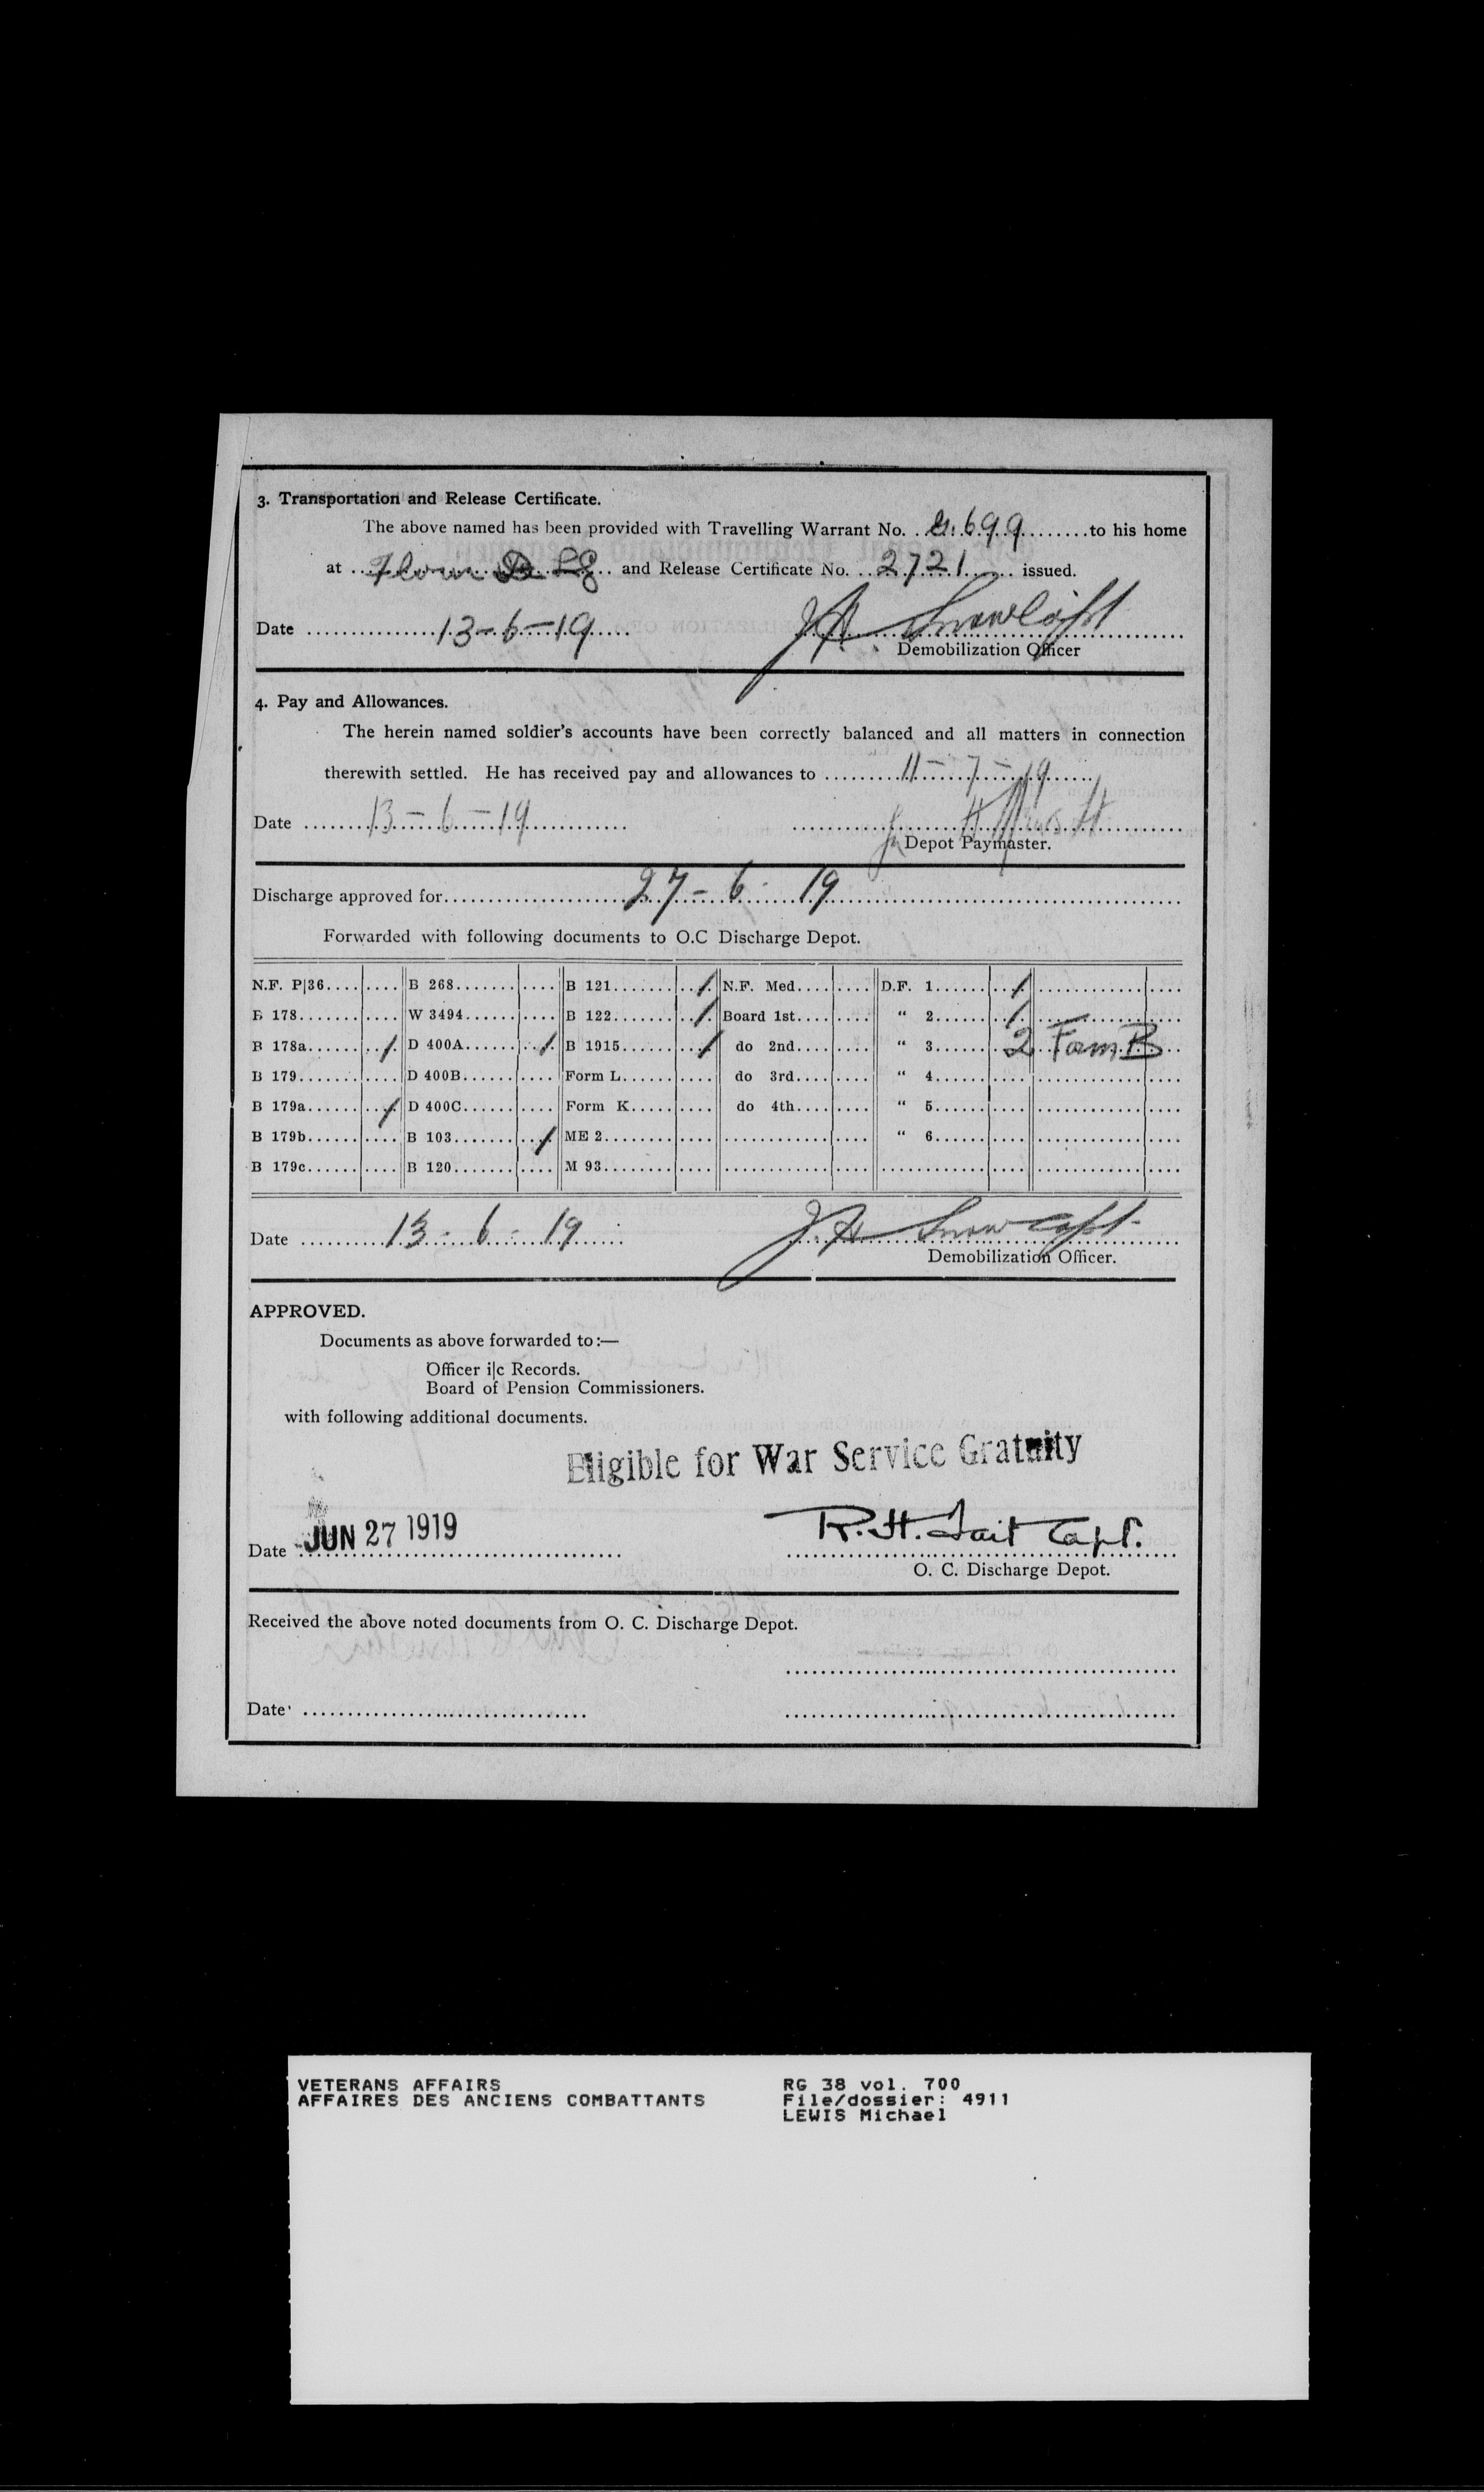 3. Transportation and Release Certificate.
The above named has been provided with Travelling Warrant No. G. 699 to his home
at and Release Certificate No. 2721 issued.
Date 13-6-19 J A Snow Capt
Demobilization Officer
4. Pay and Allowances.
The herein named soldier's accounts have been correctly balanced and all matters in connection
therewith settled. He has received pay and allowances to 11-7-19
Date 13-6-19
Depot Paymaster.
Discharge approved for 27-6-19
Forwarded with following documents to O.C Discharge Depot.
N.F. P|36 B 268 B 121 / N.F. Med. D.F. 1 /
B 178 W 3494 B 122 / Board 1st " 2 /
B 178a / D 400A / B 1915 / do 2nd " 3 2 Form B
B 179 D 400B Form L do 3rd " 4
B 179a / D 400C Form K do 4th " 5
B 179b B 103 / ME 2 " 6
B 179c B 120 M 93
Date 13-6-19 J. A Snow Capt.
Demobilization Officer.
APPROVED.
Documents as above forwarded to:—
Officer i|c Records.
Board of Pension Commissioners.
with following additional documents.
Eligible for War Service Gratuity
Date JUN 27 1919 R. H. Tait Capt.
O. C. Discharge Depot.
Received the above noted documents from O. C. Discharge Depot.
Date
VETERANS AFFAIRS RG 38 vol. 700
AFFAIRES DES ANCIENS COMBATTANTS File/dossier: 4911
LEWIS Michael